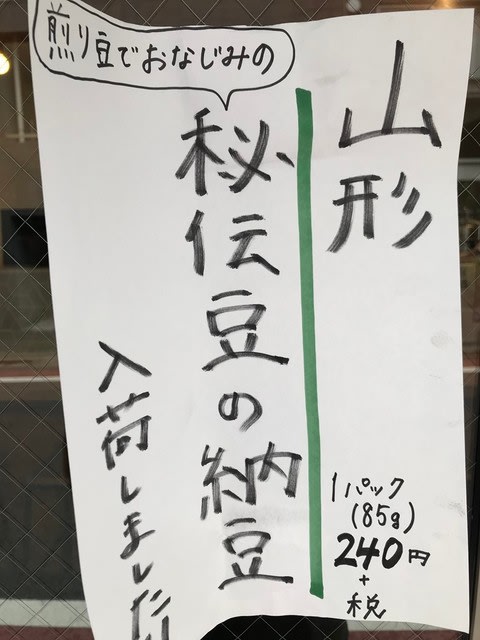 山形
1パック
(85g)
240円
+
税
煎り豆でおなじみの
秘伝豆の納豆
入荷しました